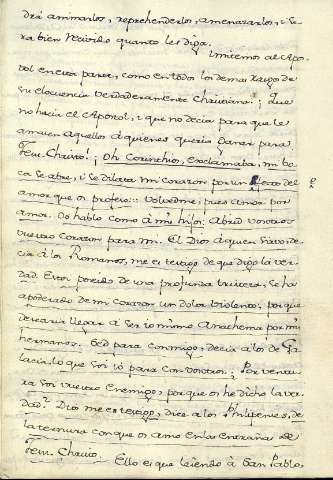 drá animarlos, reprehenderlos, amenazarlos, i se-
ra bien recivido quanto les diga.
Imitemos al Apos-
tol en esta parte, como en todos los demas rasgos de
su eloquencia verdaderamente Christiana. ¡Que
no hacia el Apostol, i que no decia para que le
amasen aquellos à quienes queria ganar para
Jesu-Christo! ¡Oh Corinthios, exclamaba, mi bo-
ca se abre, i se dilata mi corazon por un efecto del
amor que os profeso: Volvedme, pues amor por
amor. Os hablo como â mis hijos: Abrid vosotros
vuestro corazon para mi. El Dios à quien sirvo, de-
cia á los Romanos, me es testigo de que digo la ver-
dad. Estoi poseido de una profunda tristeza, se ha
apoderado de mi corazon un dolor violento: porque
desearia llegar a ser io mismo Anathema por mis
hermanos. Sed para conmigo, decia a los de Ga-
lacia, lo que soi io para con vosotros: ¿Por ventu-
ra soi vuestro enemigo, porque os he dicho la ver-
dad? Dios me es testigo, dice a los Philipenses, de
la ternura con que os amo en las entrañas de
Jesu-Christo. Ello es que leiendo à San Pablo